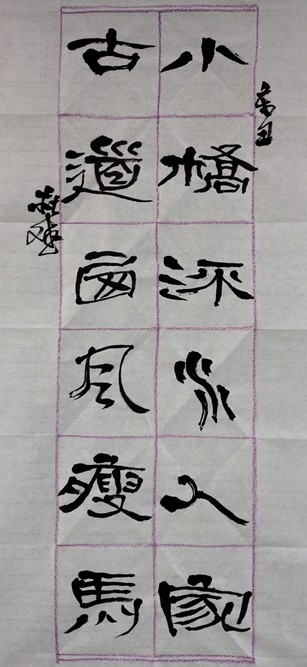 小橋流水人家
古道西風瘦馬